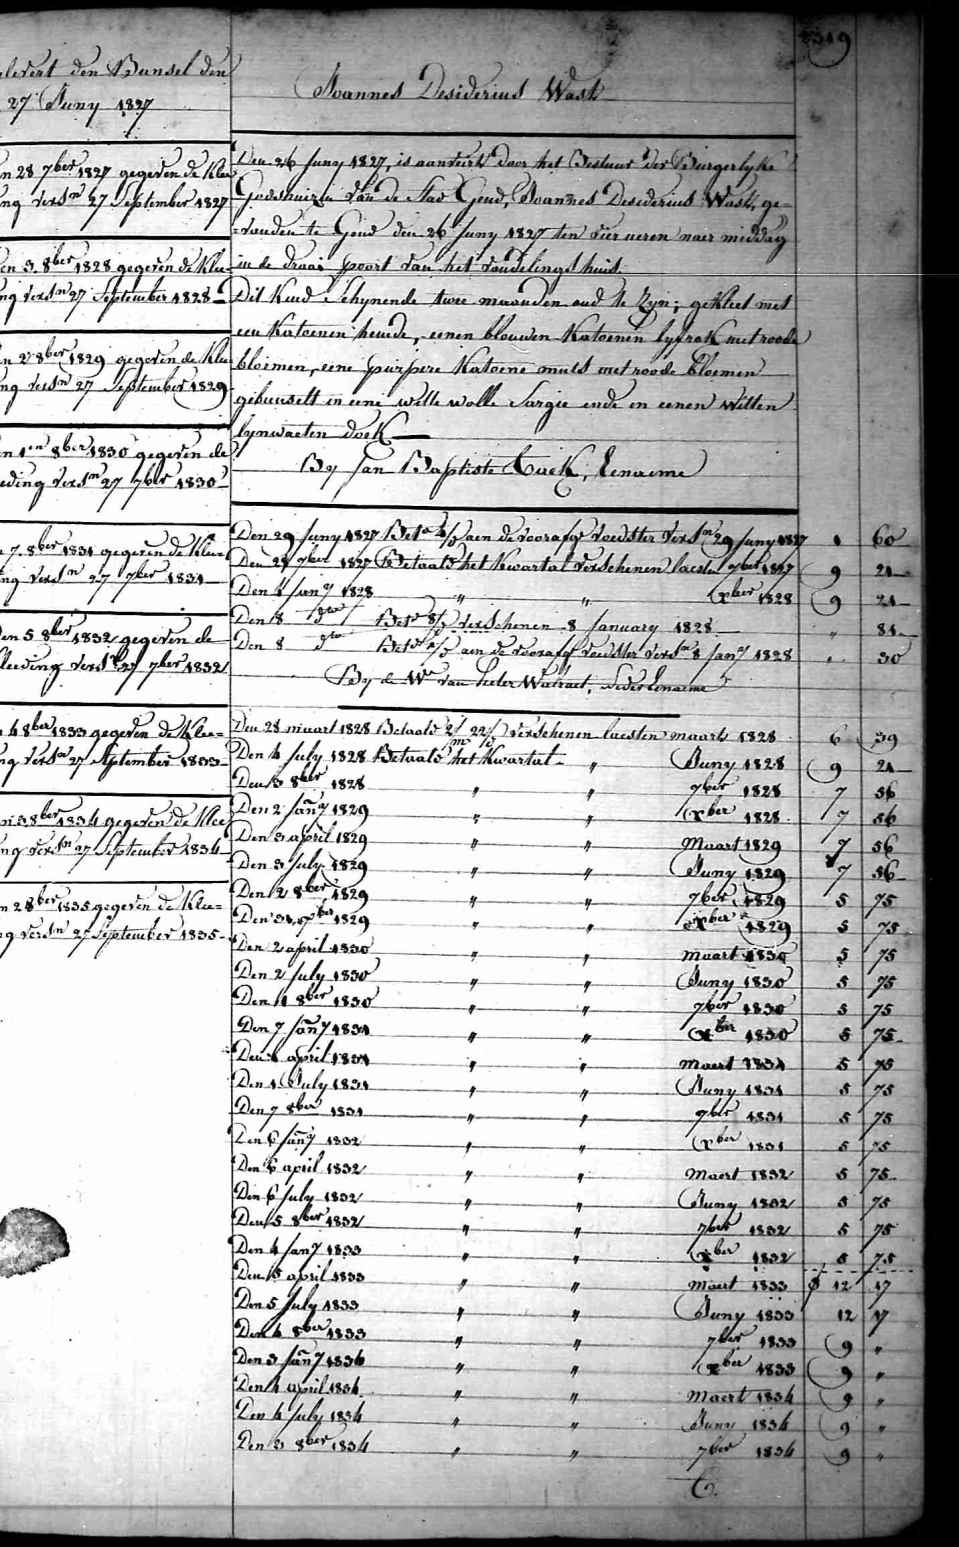 319
elevert den Bunsel den
27 Juny 1827
en 28 7ber 1827 gegeven de Klee
ng versn 27 September 1827
en 3. 8ber 1828 gegeven de Klee-
ng versn 27 September 1828
n 2 8ber 1829 gegeven de Klee
ng versn 27 September 1829
n 1en 8ber 1830 gegeven de
eding versn 27 7ber 1830
7. 8ber 1831 gegeven de Klee-
ng versn 27 7ber 1831
den 5 8ber 1832 gegeven de
leeding versn 27 7ber 1832
4 8ber 1833 gegeven de Klee=
ng versn 27 September 1833
3 8ber 1834 gegeven de Klee
ng versn 27 September 1834
n 2 8ber 1835 gegeven de Klee=
ng versn 27 September 1835
Joannes Desiderius Wask
Den 26 Juny 1827, is aanveert door het Bestuur der Burgerlyke
Godshuizen van de Stad Gend, Joannes Desiderius Wask, ge-
=vonden te Gend den 26 Juny 1827 ten vier ueren naer middag
in de draai poort van het vondelingshuis.
Dit Kind Schynende twee maanden oud te Zyn; gekleet met
een Katoenen hemde, eenen blouwen Katoenen lyfrok met roode
bloemen, eene purpere Katoene muts met roode bloemen
gebunselt in eene witte wolle Sargie ende in eenen witten
lynwaeten doek
By Jan Baptiste Tuick, Eename
Den 29 Juny 1827 Beta aen de voorafge voedster versn 29 Juny 1827 1 60
Den 28 7ber 1827 Betaald het Kwartal verschenen laesten 7ber 1827 9 21
Den 4 Jany 1828 " " Xber 1828 9 21
Den 8 dto Beta verschenen 8 January 1828 " 81
Den 8 dto Beta aen de voorafge voedster versn 8 Jany 1828 " 30
By de We van Peeter Walraet, Neder Eename
Den 28 maart 1828 Betaald verschenen laesten maart 1828 6 39
Den 4 July 1828 Betaald het Kwartal " Juny 1828 9 21
Den 3 8ber 1828 " " 7ber 1828 7 56
Den 2 Jany 1829 " " Xber 1828 7 56
Den 3 april 1829 " " Maart 1829 7 56
Den 3 July 1829 " " Juny 1829 7 56
Den 2 8ber 1829 " " 7ber 1829 5 75
Den 31 Xber 1829 " " Xber 1829 5 75
Den 2 april 1830 " " maart 1830 5 75
Den 2 July 1830 " " Juny 1830 5 75
Den 1 8ber 1830 " " 7ber 1830 5 75
Den 7 Jany 1831 " " Xber 1830 5 75
Den april 1831 " " maert 1831 5 75
Den 1 July 1831 " " Juny 1831 5 75
Den 7 8ber 1831 " " 7ber 1831 5 75
Den 6 Jany 1832 " " Xber 1831 5 75
Den 6 april 1832 " " maert 1832 5 75
Den 6 July 1832 " " Juny 1832 5 75
Den 5 8ber 1832 " " 7ber 1832 5 75
Den 4 Jany 1833 " " Xber 1832 5 75
Den 5 april 1833 " " maert 1833 12 17
Den 5 July 1833 " " Juny 1833 12 17
Den 4 8ber 1833 " " 7ber 1833 9 "
Den 3 Jany 1834 " " Xber 1833 9 "
Den 4 april 1834 " " maert 1834 9 "
Den 4 July 1834 " " Juny 1834 9 "
Den 3 8ber 1834 " " 7ber 1834 9 "